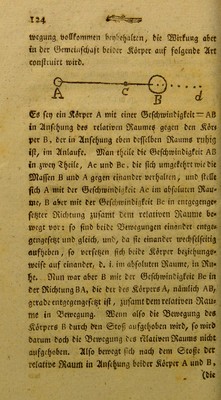 124
wegung vollkommen beybehalten, die Wirkung aber
in der Gemeinschaft beider Körper auf folgende Art
construirt wird.
A c B d
Es sey ein Körper A mit einer Geschwindigkeit = AB
in Ansehung des relativen Raumes gegen den Kör-
per B, der in Ansehung eben desselben Raums ruhig
ist, im Anlaufe. Man theile die Geschwindigkeit AB
in zwey Theile, Ac und Bc, die sich umgekehrt wie die
Massen B und A gegen einander verhalten, und stelle
sich A mit der Geschwindigkeit Ac im absoluten Rau-
me, B aber mit der Geschwindigkeit Bc in entgegenge-
setzter Richtung zusamt dem relativen Raume be-
wegt vor: so sind beide Bewegungen einander entge-
gengesetzt und gleich, und, da sie einander wechselseitig
aufheben, so versetzen sich beide Körper beziehungs-
weise auf einander, d. i. im absoluten Raume, in Ru-
he. Nun war aber B mit der Geschwindigkeit Bc in
der Richtung BA, die der des Körpers A, nämlich AB,
gerade entgegengesetzt ist, zusamt dem relativen Rau-
me in Bewegung. Wenn also die Bewegung des
Körpers B durch den Stoß aufgehoben wird, so wird
darum doch die Bewegung des relativen Raumes nicht
aufgehoben. Also bewegt sich nach dem Stoße der
relative Raum in Ansehung beider Körper A und B,
(die